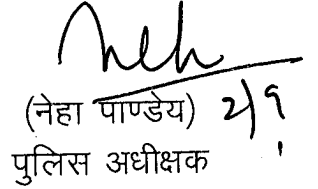 (नेहा पाण्डेय) 2/9
पुलिस अधीक्षक